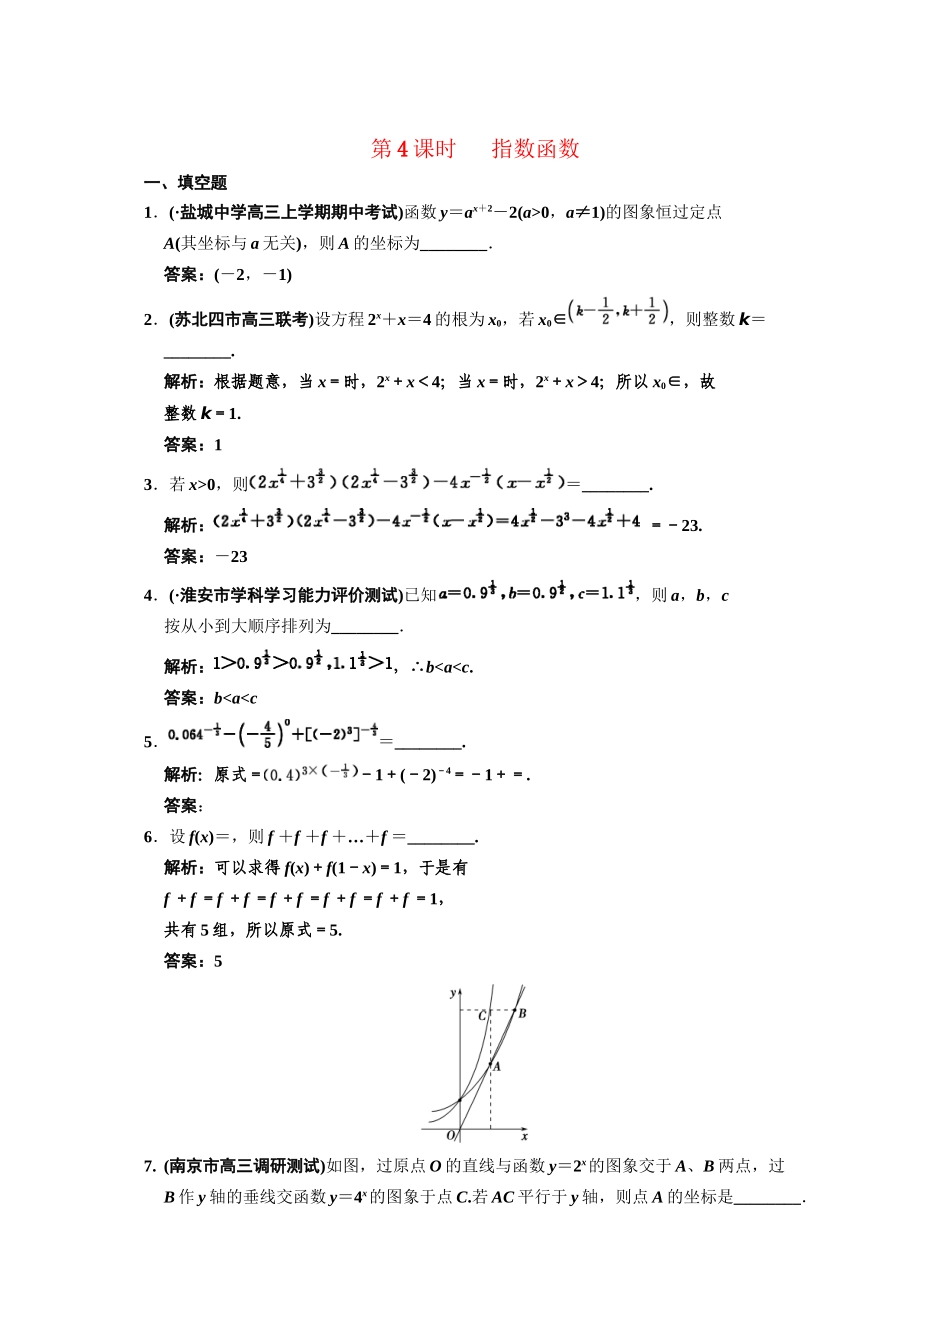 第 4 课时　　指数函数
一、填空题
1．(·盐城中学高三上学期期中考试)函数 y＝aˣ⁺²－2(a>0，a≠1)的图象恒过定点
A(其坐标与 a 无关)，则 A 的坐标为________．
答案：(－2，－1)
2．(苏北四市高三联考)设方程 2ˣ＋x＝4 的根为 x₀，若 x₀∈(k－1/2，k＋1/2)，则整数 k＝
________.
解析：根据题意，当 x＝时，2ˣ＋x＜4；当 x＝时，2ˣ＋x＞4；所以 x₀∈，故
整数 k＝1.
答案：1
3．若 x>0，则(2x^(1/4)＋3^(3/2))(2x^(1/4)－3^(3/2))－4x^(－1/2)(x－x^(1/2))＝________.
解析：(2x^(1/4)＋3^(3/2))(2x^(1/4)－3^(3/2))－4x^(－1/2)(x－x^(1/2))＝4x^(1/2)－3³－4x^(1/2)＋4 ＝－23.
答案：－23
4．(·淮安市学科学习能力评价测试)已知a＝0.9^(1/3)，b＝0.9^(1/2)，c＝1.1^(1/3)，则 a，b，c
按从小到大顺序排列为________．
解析：1＞0.9^(1/3)＞0.9^(1/2)，1.1^(1/3)＞1，∴b<a<c.
答案：b<a<c
5．0.064^(－1/3)－(－4/5)⁰＋[(－2)³]^(－4/3)＝________.
解析：原式＝(0.4)^(3×(－1/3))－1＋(－2)⁻⁴＝－1＋＝.
答案：
6．设 f(x)＝，则 f ＋f ＋f ＋…＋f ＝________.
解析：可以求得 f(x)＋f(1－x)＝1，于是有
f ＋f ＝f ＋f ＝f ＋f ＝f ＋f ＝f ＋f ＝1，
共有 5 组，所以原式＝5.
答案：5
y
C
B
A
O
x
7. (南京市高三调研测试)如图，过原点 O 的直线与函数 y＝2ˣ的图象交于 A、B 两点，过
B 作 y 轴的垂线交函数 y＝4ˣ的图象于点 C.若 AC 平行于 y 轴，则点 A 的坐标是________．